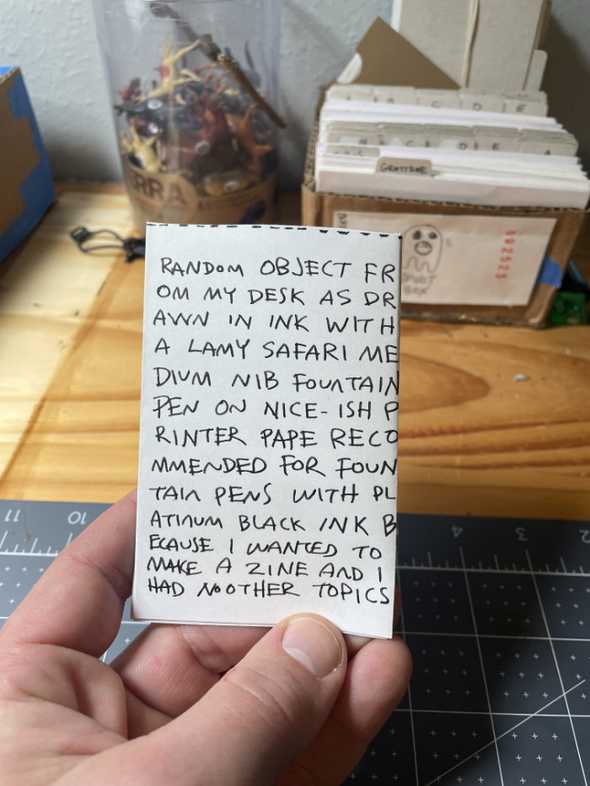 ERRA
B C D E
C D E A
GRATITUDE
BOX
592525
RANDOM OBJECT FR
OM MY DESK AS DR
AWN IN INK WITH
A LAMY SAFARI ME
DIUM NIB FOUNTAIN
PEN ON NICE-ISH P
RINTER PAPE RECO
MMENDED FOR FOUN
TAIN PENS WITH PL
ATINUM BLACK INK B
ECAUSE I WANTED TO
MAKE A ZINE AND I
HAD NO OTHER TOPICS
11 10 4 3 2